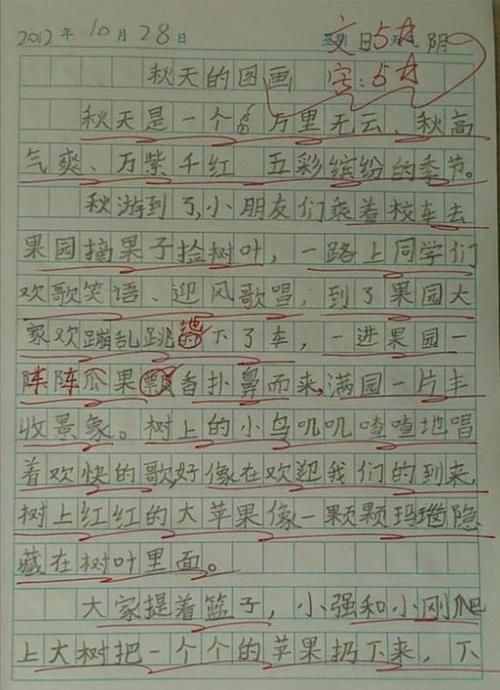 2012年10月28日 日 阴
文：5星
字：5星
秋天的图画
秋天是一个 万里无云、秋高
气爽、万紫千红 五彩缤纷的季节。
秋游到了,小朋友们乘着校车去
果园摘果子捡树叶，一路上同学们
欢歌笑语、迎风歌唱；到了果园大
家欢蹦乱跳地下了车，一进果园一
阵阵瓜果 香扑鼻而来,满园一片丰
收景象。树上的小鸟叽叽喳喳地唱
着欢快的歌,好像在欢迎我们的到来,
树上红红的大苹果像一颗颗玛瑙隐
藏在树叶里面。
大家提着篮子，小强和小刚爬
上大树把一个个的苹果扔下来，下